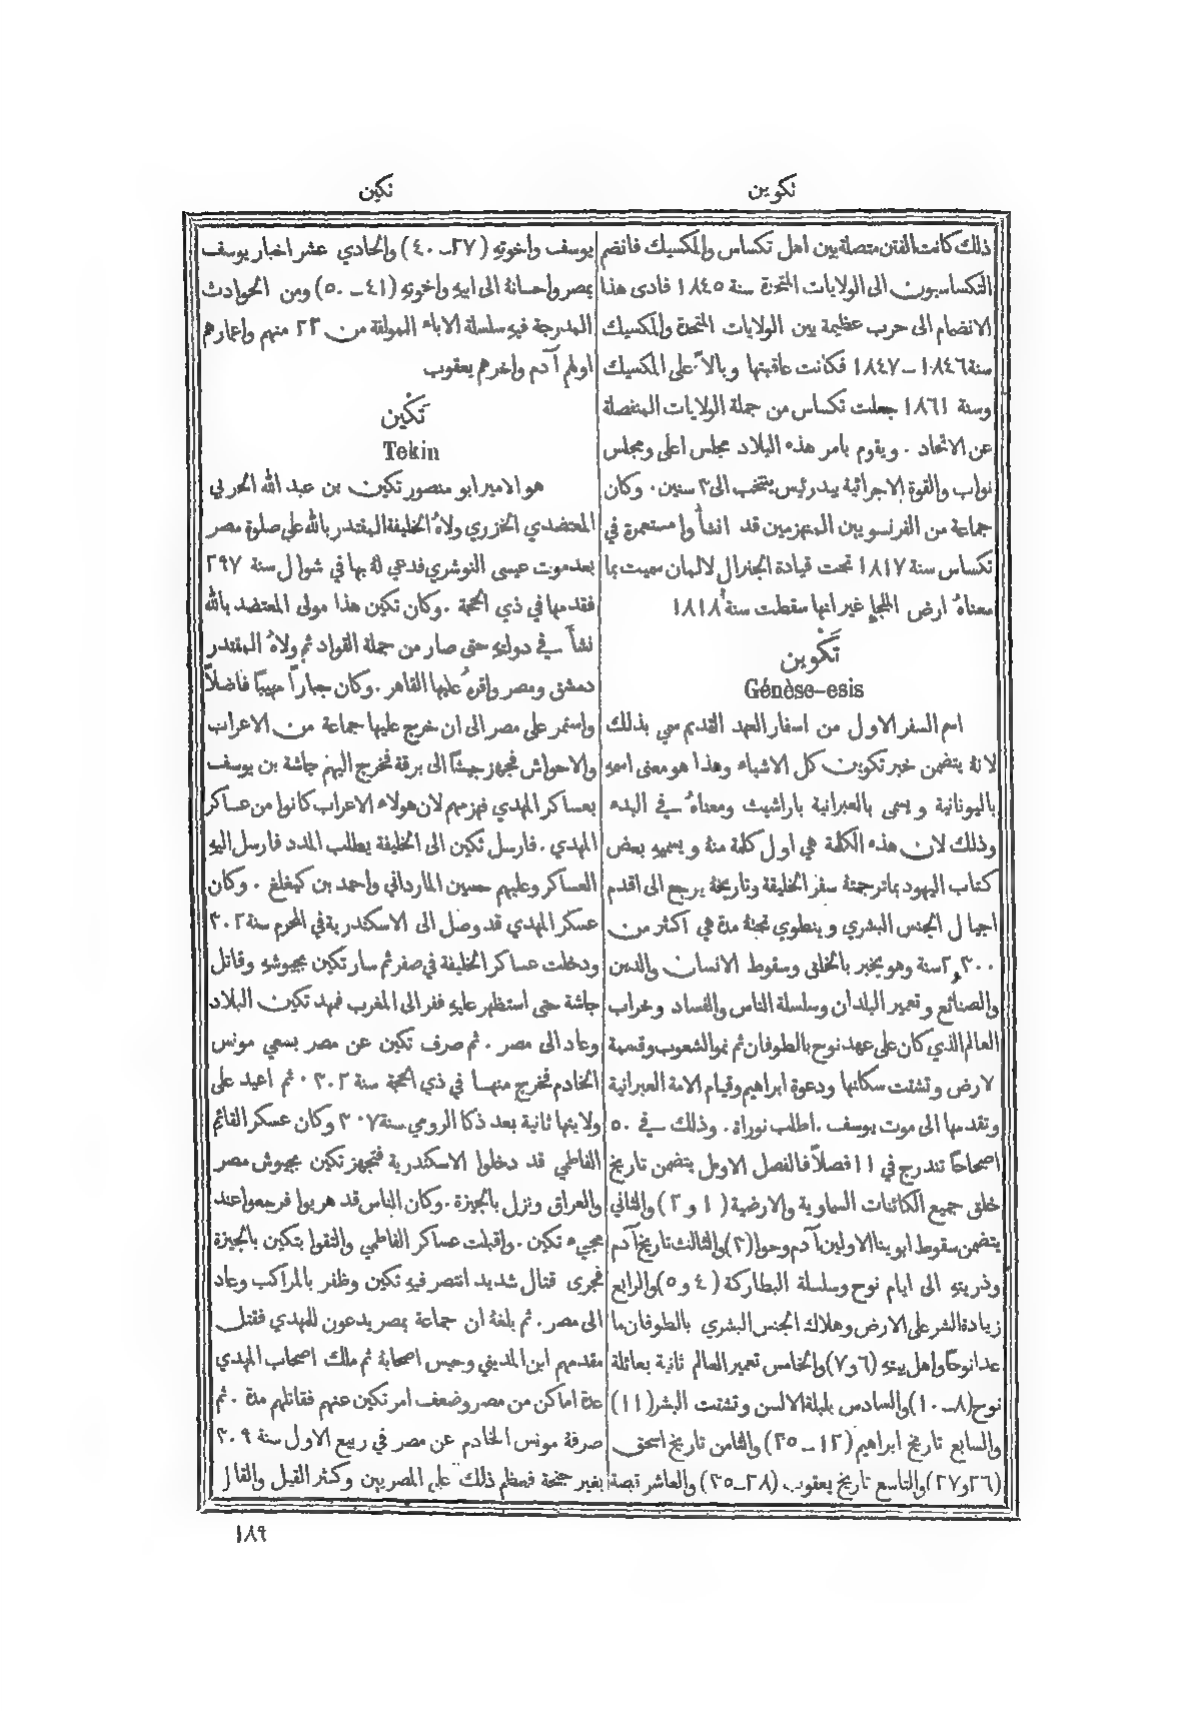 تكوين
تكين
ذلك كانت الفتن متصلة بين اهل تكساس والمكسيك فانضم
التكساسيون الى الولايات المتحدة سنة ١٨٤٥ فادى هذا
الانضمام الى حرب عظيمة بين الولايات المتحدة والمكسيك
سنة ١٨٤٦ – ١٨٤٧ فكانت عاقبتها وبالاً على المكسيك
وسنة ١٨٦١ جعلت تكساس من جملة الولايات المنفصلة
عن الاتحاد . ويقوم بامر هذه البلاد مجلس اعلى ومجلس
نواب والقوة الاجرائية بيد رئيس ينتخب الى ٢ سنين . وكان
جماعة من الفرنسويين المنهزمين قد انشأوا مستعمرة في
تكساس سنة ١٨١٧ تحت قيادة الجنرال لالمان سميت بما
معناهُ ارض الملجإ غير انها سقطت سنة ١٨١٨
تَكْوين
Génèse-esis
اسم السفر الاول من اسفار العهد القديم سمي بذلك
لانهُ يتضمن خبر تكوين كل الاشياء وهذا هو معنى اسمهِ
باليونانية ويسمى بالعبرانية باراشيث ومعناهُ في البدء
وذلك لان هذه الكلمة هي اول كلمة منهُ ويسميهِ بعض
كتاب اليهود بما ترجمتهُ سفر الخليقة وتاريخهُ يرجع الى اقدم
اجيال الجنس البشري وينطوي تحتهُ مدة هي اكثر من
٢,٣٠٠ سنة وهو يخبر بالخلق وسقوط الانسان والدين
والصنائع وتعمير البلدان وسلسلة الناس والفساد وخراب
العالم الذي كان على عهد نوح بالطوفان ثم نمو الشعوب وقسمة
لارض وتشتت سكانها ودعوة ابراهيم وقيام الامة العبرانية
وتقدمها الى موت يوسف . اطلب نوراة . وذلك في ٥٠
اصحاحاً تندرج في ١١ فصلاً فالفصل الاول يتضمن تاريخ
خلق جميع الكائنات السماوية والارضية (١ و ٢) والثاني
يتضمن سقوط ابوينا الاولين آدم وحوا (٣) والثالث تاريخ آدم
وذريتهِ الى ايام نوح وسلسلة البطاركة (٤ و ٥) والرابع
زيادة الشر على الارض وهلاك الجنس البشري بالطوفان ما
عدا نوحاً واهل بيتهِ (٦ و٧) والخامس تعمير العالم ثانية بعائلة
نوح (٨–١٠) والسادس بلبلة الالسن وتشتت البشر (١١)
والسابع تاريخ ابراهيم (١٢–٢٥) والثامن تاريخ اسحق
(٢٦ و٢٧) والتاسع تاريخ يعقوب (٢٨–٣٥) والعاشر قصة
يوسف واخوتهِ (٢٧–٤٠) والحادي عشر اخبار يوسف
بمصر واحسانهُ الى ابيهِ واخوتهِ (٤١–٥٠) ومن الحوادث
المدرجة فيهِ سلسلة الاباء المولفة من ٢٣ منهم واعمارهم
اولهم آدم واخرهم يعقوب
تَكْين
Tekin
هو الامير ابو منصور تكين بن عبد الله الحربي
المعتضدي الخزري ولاهُ الخليفة المقتدر بالله على صلوة مصر
بعد موت عيسى النوشري فدعي لهُ بها في شوال سنة ٢٩٧
فقدمها في ذي الحجة . وكان تكين هذا مولى المعتضد بالله
نشأ في دولتهِ حتى صار من جملة القواد ثم ولاهُ المقتدر
دمشق ومصر واقرهُ عليها القاهر . وكان جباراً مهيبًا فاضلاً
واستمر على مصر الى ان خرج عليها جماعة من الاعراب
والاحواش فجهز جيشًا الى برقة فخرج اليهم حباشة بن يوسف
بعساكر المهدي فهزمهم لان هولاء الاعراب كانوا من عساكر
المهدي . فارسل تكين الى الخليفة يطلب المدد فارسل اليهِ
العساكر وعليهم حسين المارداني واحمد بن كيغلغ . وكان
عسكر المهدي قد وصل الى الاسكندرية في المحرم سنة ٣٠٢
ودخلت عساكر الخليفة في صفر ثم سار تكين بجيوشهِ وقاتل
حباشة حتى استظهر عليهِ ففر الى المغرب فمهد تكين البلاد
وعاد الى مصر . ثم صرف تكين عن مصر بسعي مونس
الخادم فخرج منها في ذي الحجة سنة ٣٠٢ . ثم اعيد على
ولايتها ثانية بعد ذكا الرومي سنة ٣٠٧ وكان عسكر القائم
الفاطمي قد دخلوا الاسكندرية فتجهز تكين بجيوش مصر
والعراق ونزل بالجيزة . وكان الناس قد هربوا فرجعوا عند
مجيء تكين . واقبلت عساكر الفاطمي والتقوا بتكين بالجيزة
فجرى قتال شديد انتصر فيهِ تكين وظفر بالمراكب وعاد
الى مصر . ثم بلغهُ ان جماعة بمصر يدعون للمهدي فقتل
مقدمهم ابن المديني وحبس اصحابهُ ثم ملك اصحاب المهدي
عدة اماكن من مصر وضعف امر تكين عنهم فقاتلهم مدة . ثم
صرفهُ مونس الخادم عن مصر في ربيع الاول سنة ٣٠٩
بغير جنحة فعظم ذلك على المصريين وكثر القيل والقال
١٨٩